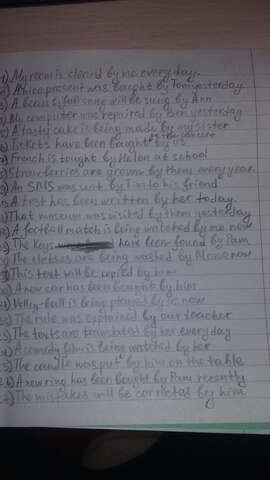 1) My room is cleand by me every day.
2) A nice present was bought by Tom yesterday
3) A beautiful song will be sung by Ann
4) My computer was repaired by Ben yesterday
5) A tasty cake is being made by my sister
to the concert
6) Tickets have been baught by us
7) French is tought by Helen at school
8) Strawberries are grown by them every year.
9) An SMS was sent by Tim to his friend
10) A test has been written by her today.
11) That museum was visited by them yesterday
12) A football match is being watched by me now
13) The keys have been found by Pam
14) The clothes are being washed by now
15) This text will be copied by him
16) A new car has been bought by him
17) Volley-ball is being played by us now
18) The rule was explained by our teacher
19) The texts are translated by her every day
20) A comedy film is being watched by her
21) The candle was put by him on the table
22) A new ring has been bought by Pam recently
23) The mistakes will be corrected by him